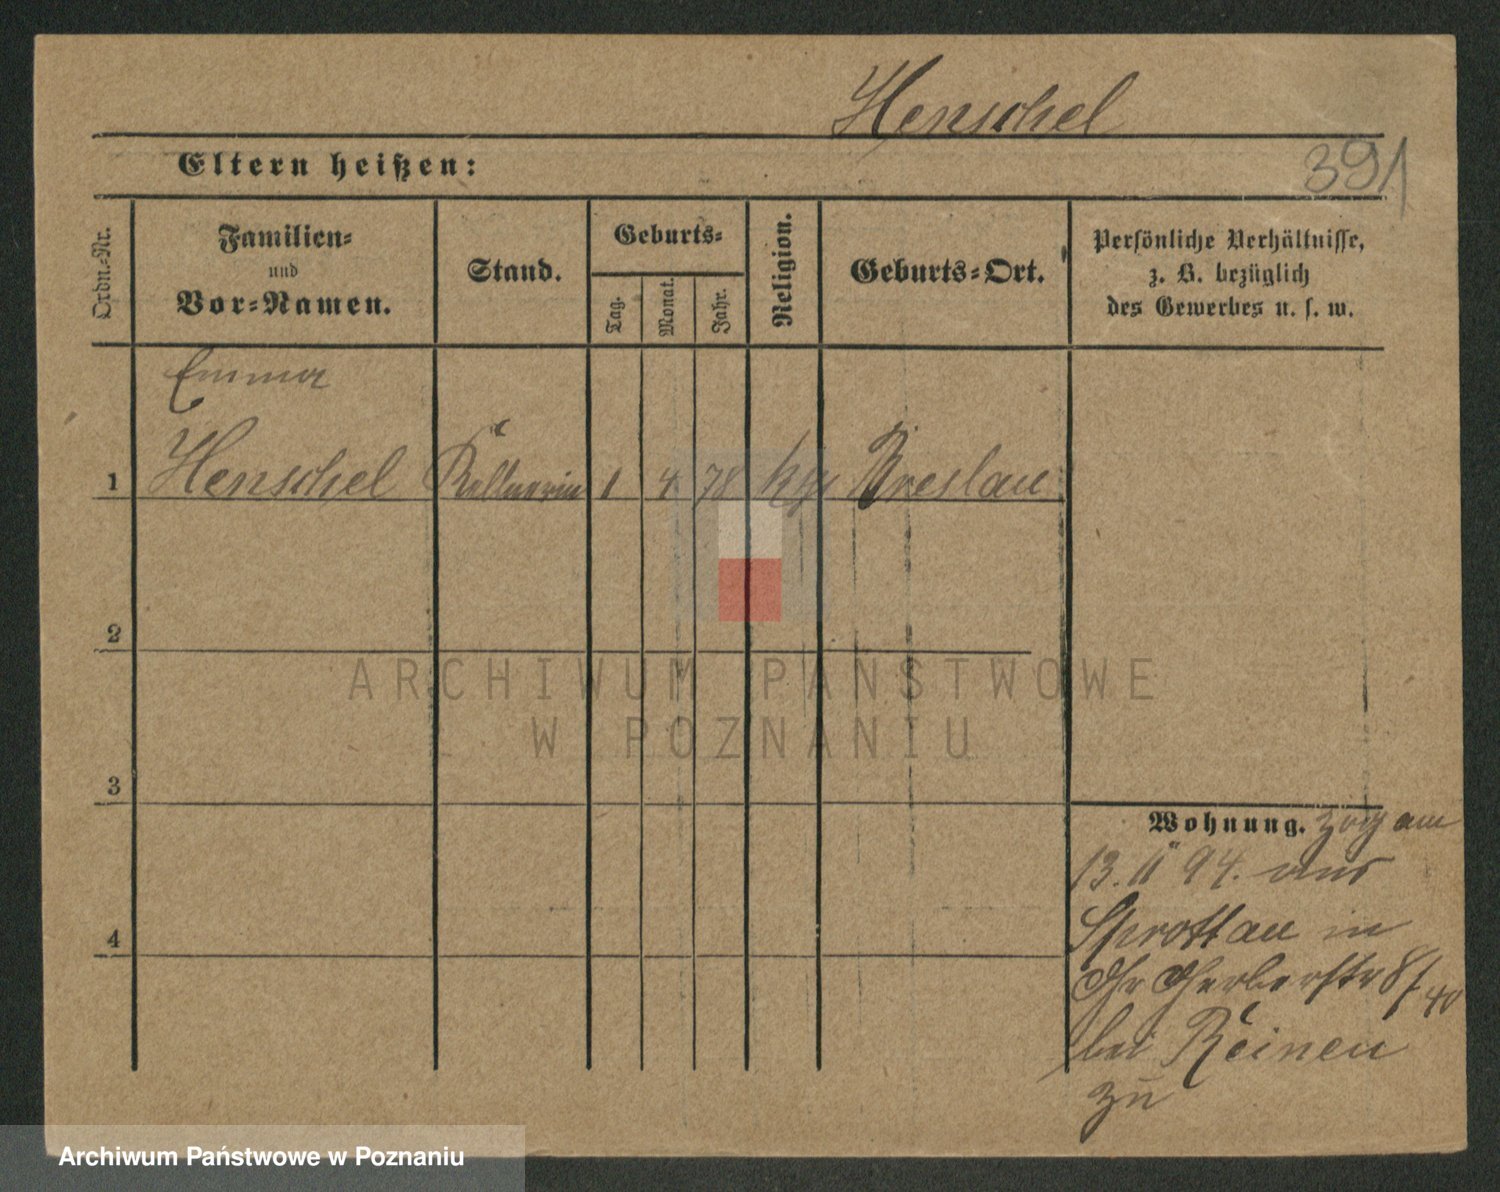 Henschel
391
Eltern heißen:
Ordn.-Nr.
Familien-
und
Vor-Namen.
Stand.
Geburts-
Tag.
Monat.
Jahr.
Religion.
Geburts-Ort.
Persönliche Verhältnisse,
z. B. bezüglich
des Gewerbes u. s. w.
Emma
1 Henschel Kellnerin 1 4 78 Breslau
2
3
4
Wohnung. zog am
13. 11 94. aus
Sprottau in
Gr Gerberstr 8/40
bei Reinen
zu
ARCHIWUM PAŃSTWOWE
W POZNANIU
Archiwum Państwowe w Poznaniu